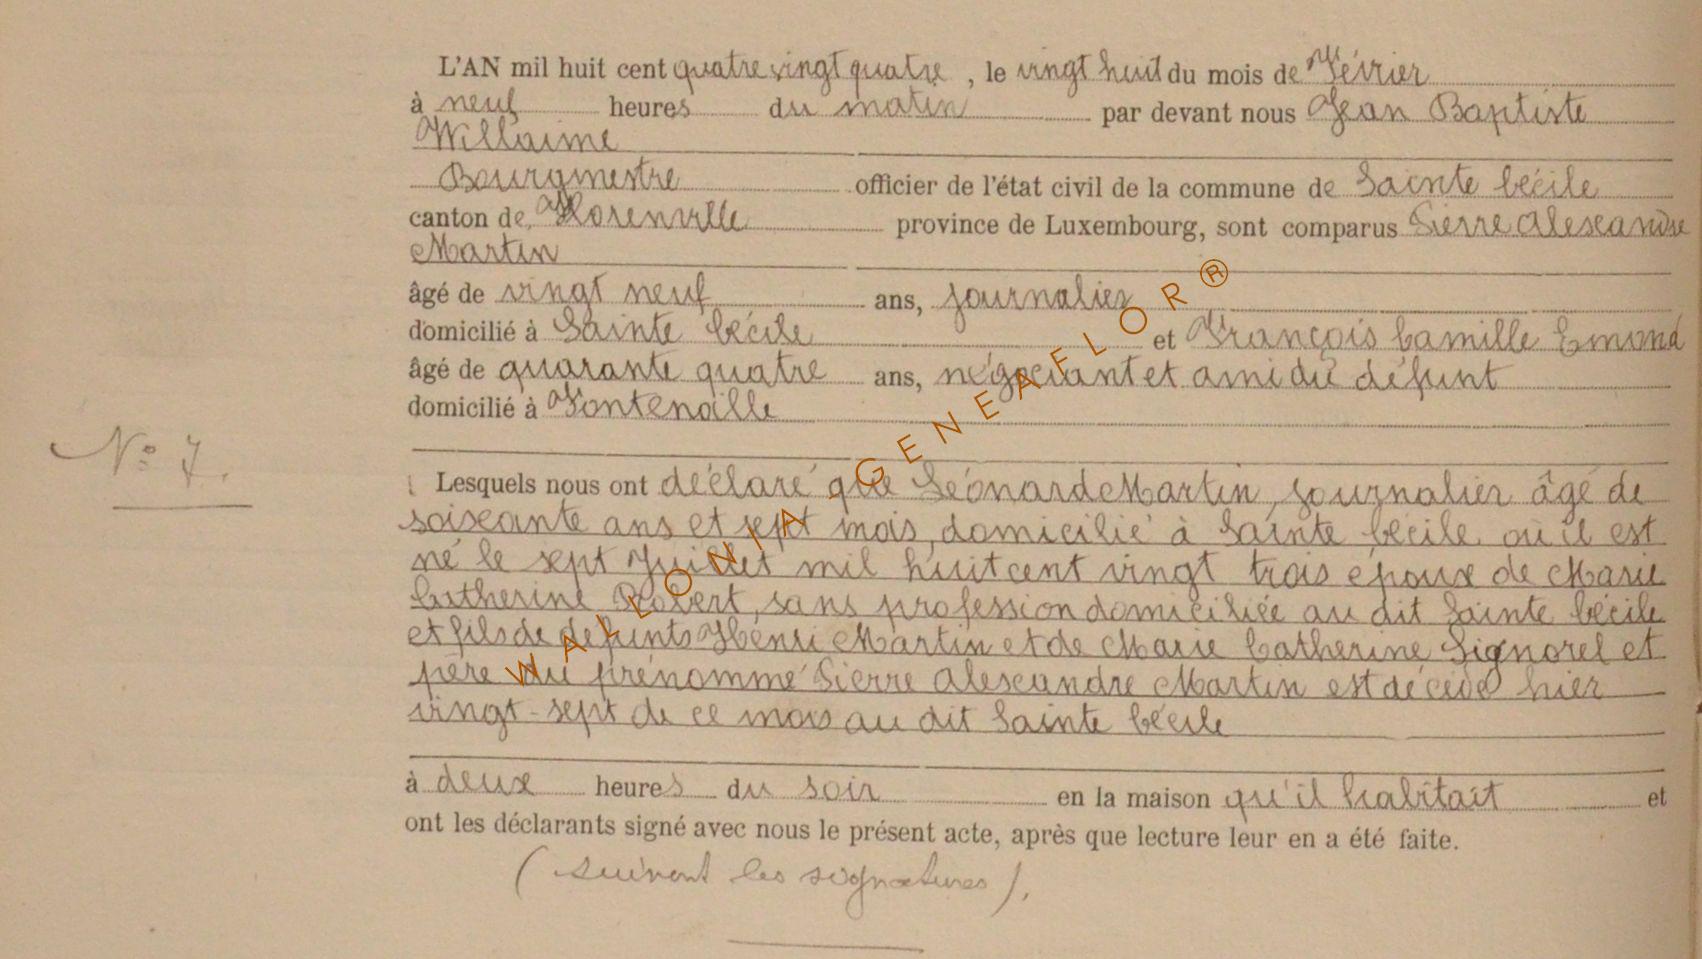 L'AN mil huit cent quatre vingt quatre, le vingt huit du mois de Février
à neuf heures du matin par devant nous Jean Baptiste
Willaime
Bourgmestre officier de l'état civil de la commune de Sainte Cécile
canton de Florenville province de Luxembourg, sont comparus Pierre Alexandre
Martin
âgé de vingt neuf ans, journalier
domicilié à Sainte Cécile et François Camille Emond
âgé de quarante quatre ans, négociant et ami du défunt
domicilié à Fontenoille
N° 7.
Lesquels nous ont déclaré que Léonard Martin, journalier âgé de
soixante ans et sept mois, domicilié à Sainte Cécile où il est
né le sept Juillet mil huit cent vingt trois époux de Marie
Catherine Robert, sans profession domiciliée au dit Sainte Cécile
et fils de défunts Henri Martin et de Marie Catherine Signorel et
père du prénommé Pierre Alexandre Martin est décédé hier
vingt-sept de ce mois au dit Sainte Cécile
à deux heures du soir en la maison qu'il habitait et
ont les déclarants signé avec nous le présent acte, après que lecture leur en a été faite.
(suivent les signatures).
WALLONIA GENEAFLOR®